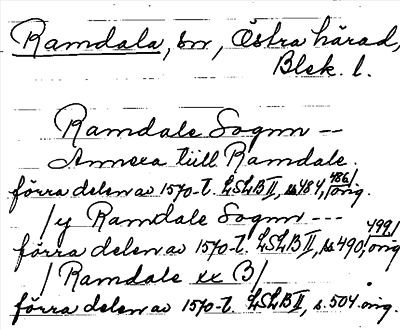 Ramdala, sn, Östra härad,
Blek. l.
Ramdale Sognn --
Annexa tiill Ramdale.
förra delen av 1570-t. LSLB II, s. 484, /486/ orig.
/y Ramdale Sognn ---
förra delen av 1570-t. LSLB II, s. 490, /499/ orig
/Ramdale xx B/
förra delen av 1570-t. LSLB II, s. 504 orig.